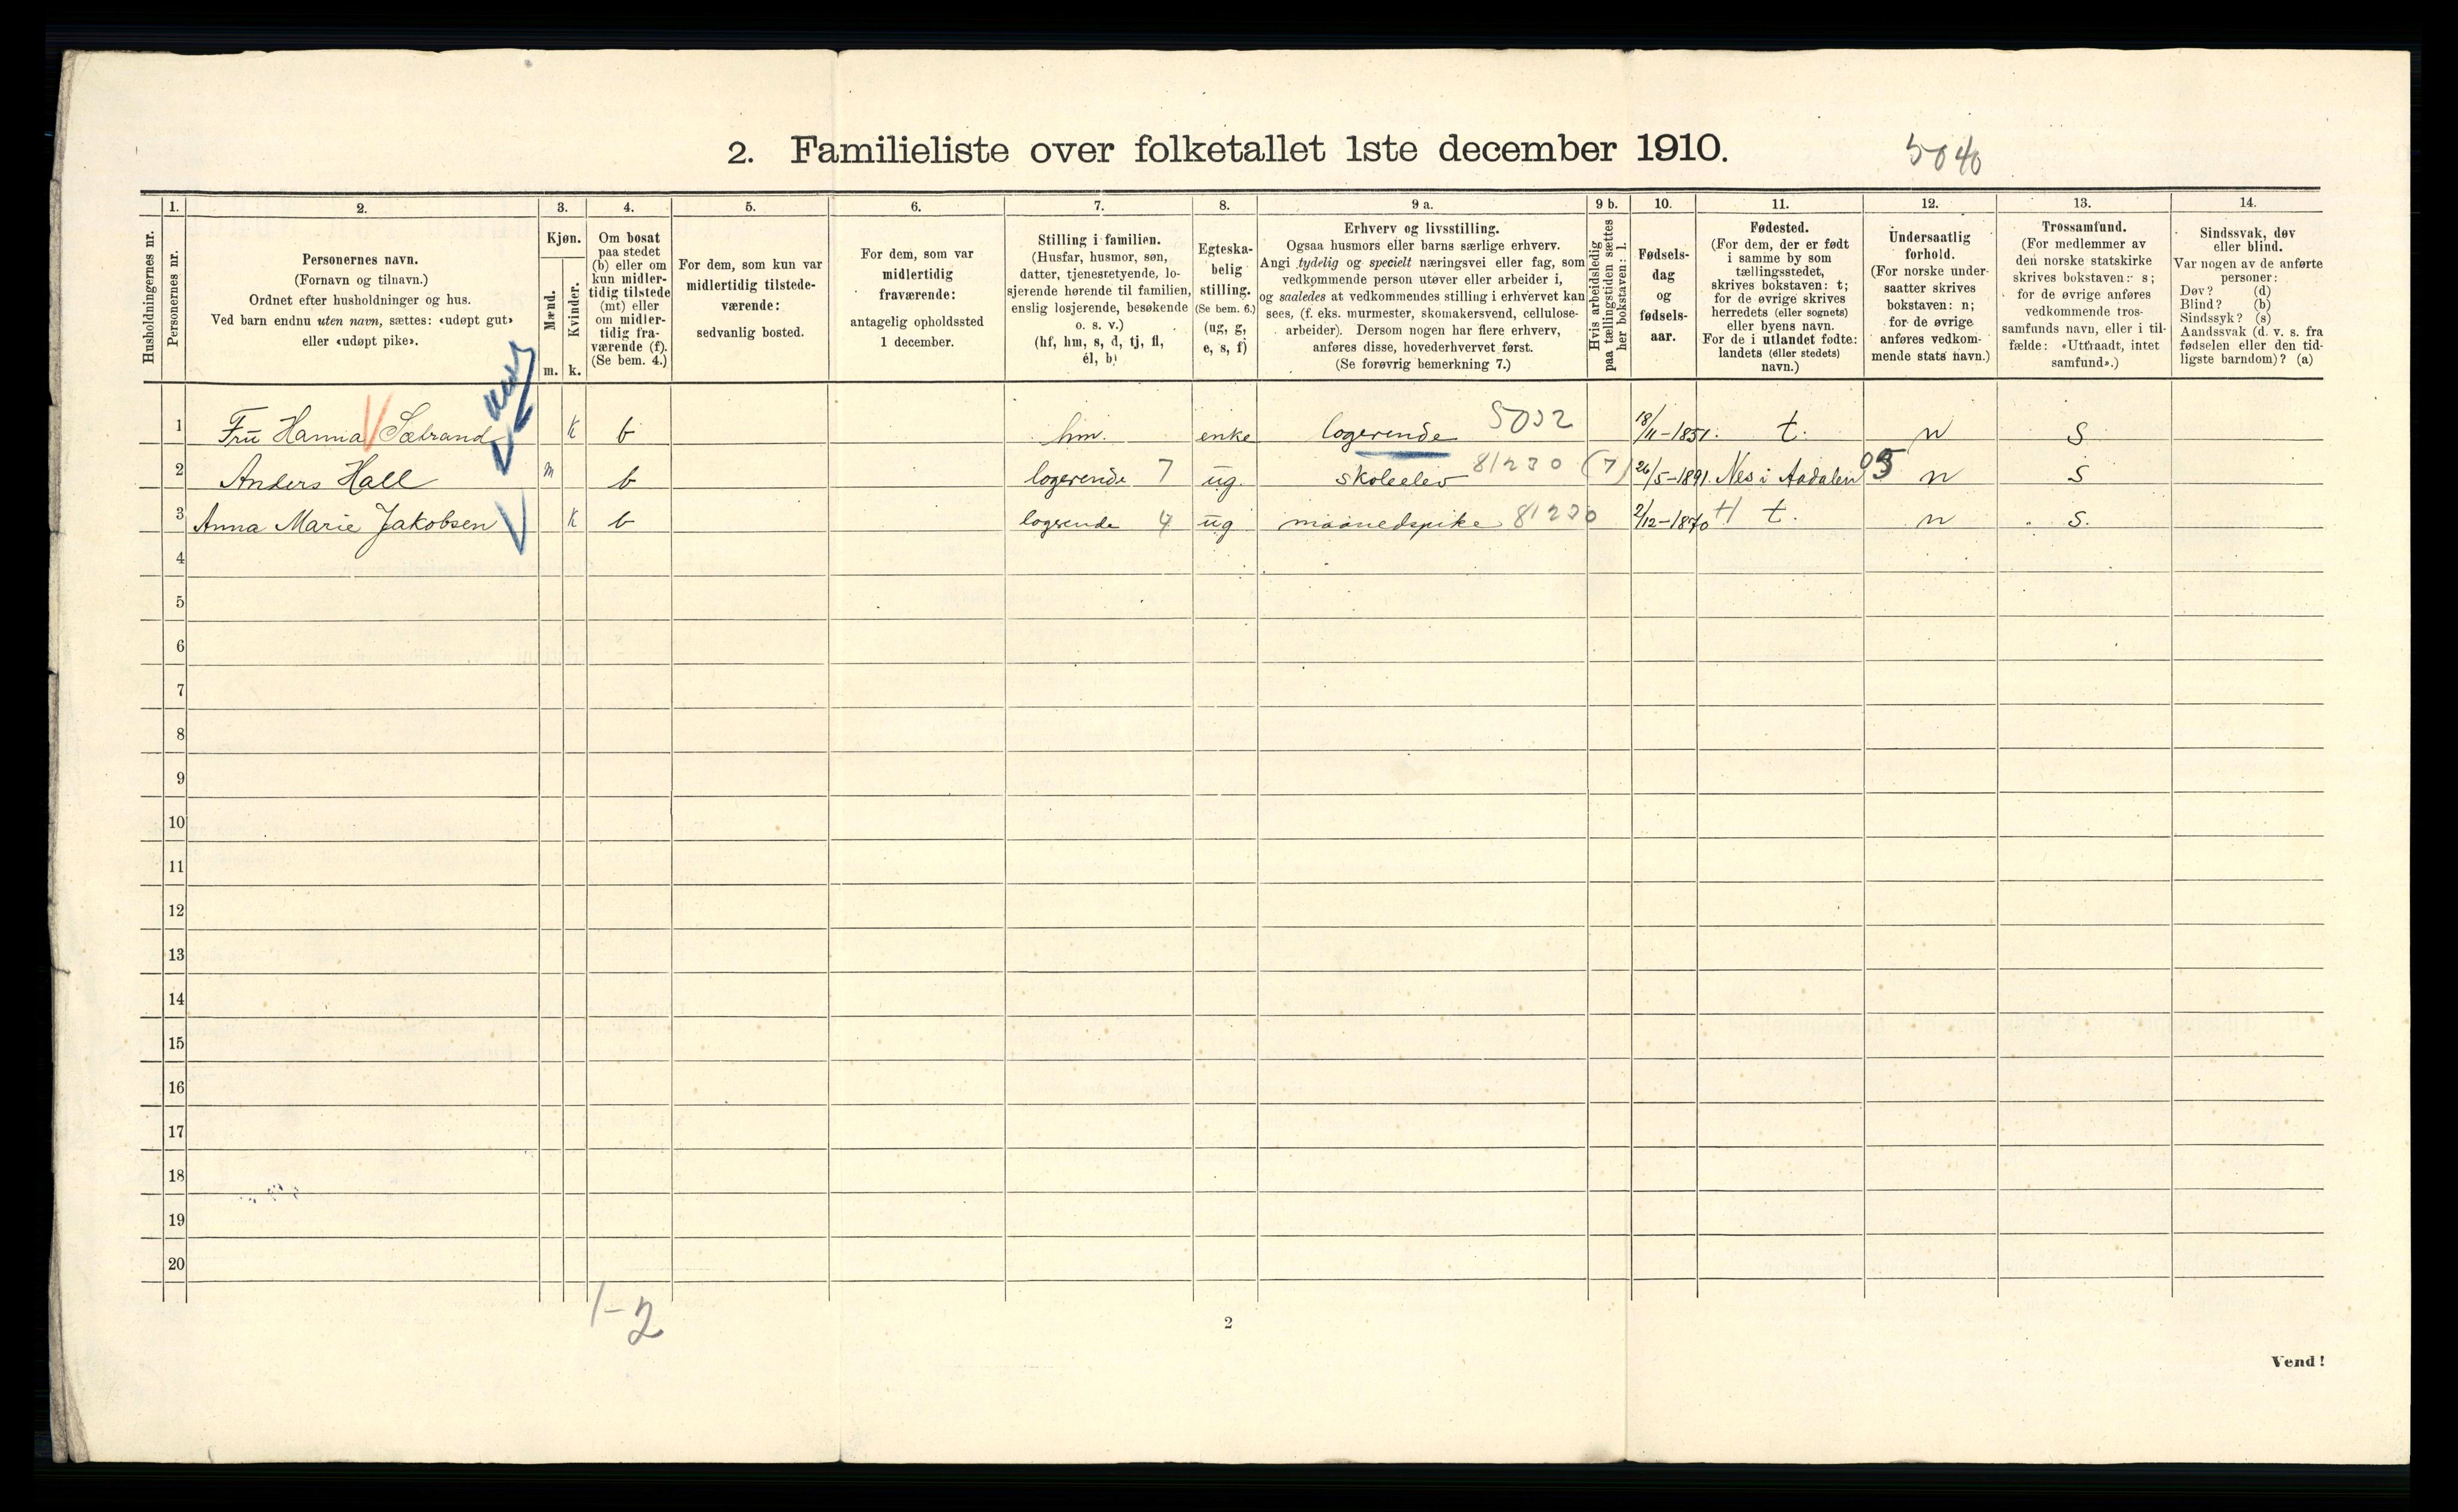 2. Familieliste over folketallet 1ste december 1910.
5040
Husholdningernes nr.
1.
Personernes nr.
2.
Personernes navn.
(Fornavn og tilnavn.)
Ordnet efter husholdninger og hus.
Ved barn endnu uten navn, sættes: «udøpt gut»
eller «udøpt pike».
3.
Kjøn.
Mænd.
Kvinder.
m. k.
4.
Om bosat
paa stedet
(b) eller om
kun midler-
tidig tilstede
(mt) eller
om midler-
tidig fra-
værende (f).
(Se bem. 4.)
5.
For dem, som kun var
midlertidig tilstede-
værende:
sedvanlig bosted.
6.
For dem, som var
midlertidig
fraværende:
antagelig opholdssted
1 december.
7.
Stilling i familien.
(Husfar, husmor, søn,
datter, tjenestetyende, lo-
sjerende hørende til familien,
enslig losjerende, besøkende
o. s. v.)
(hf, hm, s, d, tj, fl,
el, b)
8.
Egteska-
belig
stilling.
(Se bem. 6.)
(ug, g,
e, s, f)
9 a.
Erhverv og livsstilling.
Ogsaa husmors eller barns særlige erhverv.
Angi tydelig og specielt næringsvei eller fag, som
vedkommende person utøver eller arbeider i,
og saaledes at vedkommendes stilling i erhvervet kan
sees, (f. eks. murmester, skomakersvend, cellulose-
arbeider). Dersom nogen har flere erhverv,
anføres disse, hovederhvervet først.
(Se forøvrig bemerkning 7.)
9 b.
Hvis arbeidsledig
paa tællingstiden sættes
her bokstaven: l.
10.
Fødsels-
dag
og
fødsels-
aar.
11.
Fødested.
(For dem, der er født
i samme by som
tællingsstedet,
skrives bokstaven: t;
for de øvrige skrives
herredets (eller sognets)
eller byens navn.
For de i utlandet fødte:
landets (eller stedets)
navn.)
12.
Undersaatlig
forhold.
(For norske under-
saatter skrives
bokstaven: n;
for de øvrige
anføres vedkom-
mende stats navn.)
13.
Trossamfund.
(For medlemmer av
den norske statskirke
skrives bokstaven: s;
for de øvrige anføres
vedkommende tros-
samfunds navn, eller i til-
fælde: «Uttraadt, intet
samfund».)
14.
Sindssvak, døv
eller blind.
Var nogen av de anførte
personer:
Døv? (d)
Blind? (b)
Sindssyk? (s)
Aandssvak (d. v. s. fra
fødselen eller den tid-
ligste barndom)? (a)
1 Fru Hanna Sæbrand K b hm. enke logerende 5052 18/11-1851. t. n S
2 Anders Hall m b logerende 7 ug. skoleelev 81230 (7) 26/5-1891. Nes i Aadalen 05 n S
3 Anna Marie Jakobsen K b logrende 4 ug maanedspike 81230 2/12-1870 t. n S.
4
5
6
7
8
9
10
11
12
13
14
15
16
17
18
19
20
1-2
2
Vend!